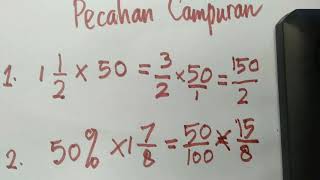 Pecahan Campuran
1. 1 1/2 × 50 = 3/2 × 50/1 = 150/2
2. 50% × 1 7/8 = 50/100 × 15/8